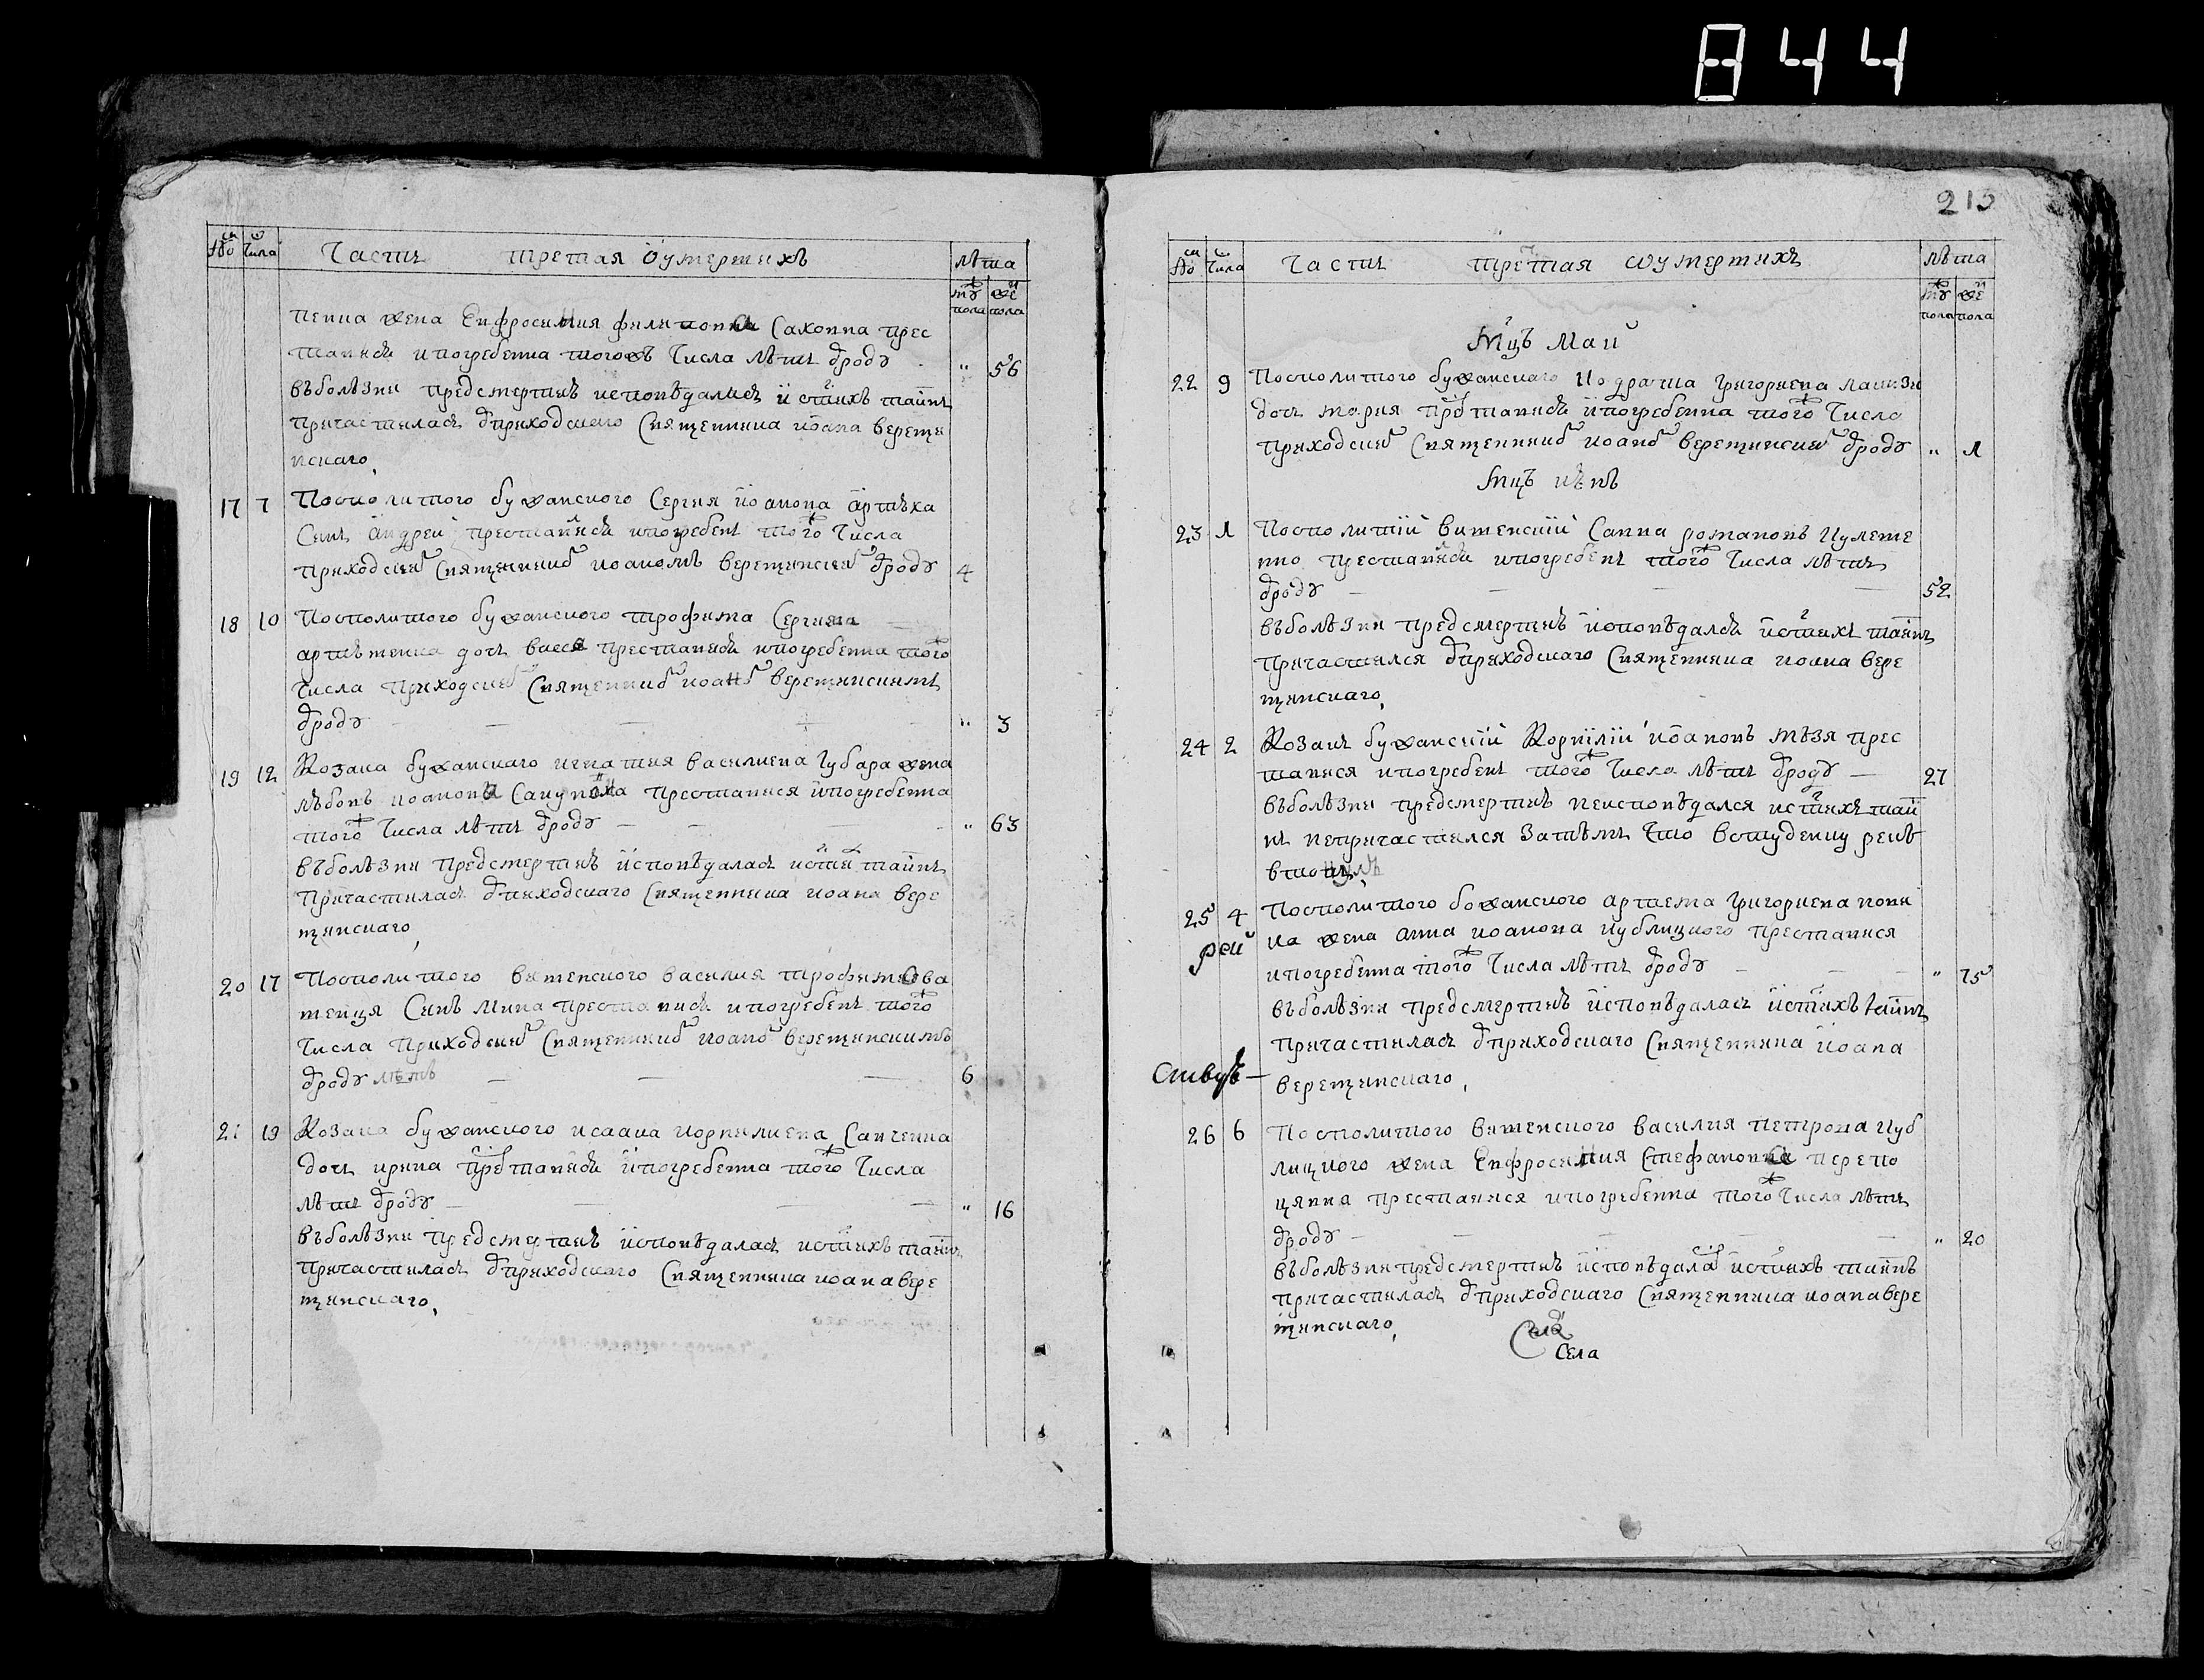 844
213
Число Числа Часть третая оумершихъ лѣта
муж пола жен пола
жена Евфросиния филипова прес
тавися и погребенна тогожъ Числа лѣтъ ѿроду " 56
въболѣзни предсмертнѣ исповѣдалась и стыхъ таинъ
причастилась ѿприходскаго Священника Иоана Вереще
нскаго,
17 7 Посполитого бужанского Сергия Иоанова
Синъ андрей преставися и погребенъ того Числа
приходским Священником Иоаномъ Верещинским ѿроду 4
18 10 Посполитого бужанского трофима Сергиева
дочь васса преставися и погребенна того
Числа приходским Священником Иоаном Верещинскимъ
ѿроду " 3
19 12 Козака бужанскаго игнатия василиева губара жена
любовь Иоанова преставися и погребенна
того Числа лѣтъ ѿроду " 63
въболѣзни предсмертнѣ исповѣдалась и стых таинъ
причастилась ѿприходскаго Священника Иоана Вере
щинскаго,
20 17 Посполитого василия трофимова
Синъ Мина преставися и погребенъ того
Числа приходским Священником Иоаном Верещинскимъ
ѿроду лѣтъ 6
21 19 Козака бужанского исаака корнилиева Савченка
дочь ирина преставися и погребенна того Числа
лѣтъ ѿроду " 16
въболѣзни предсмертнѣ исповѣдалась и стыхъ таинъ
причастилась ѿприходскаго Священника Иоана Вере
щинскаго,
Число Числа Часть третая ѡумершихъ лѣта
муж пола жен пола
Мцъ Маи
22 9 Посполитого бужанскаго григориева
дочь мария преставися и погребенна того Числа
приходским Священником Иоаном Верещинским ѿроду " 1
Мцъ
23 1 Посполитій Савва романовъ
преставися и погребенъ того Числа лѣтъ
ѿроду 52
въболѣзни предсмертнѣ исповѣдался и стыхъ таинъ
причастился ѿприходскаго Священника Иоана Вере
щинскаго,
24 2 Козакъ бужанскій Корнілій Иоановъ мѣзя прес
тавися и погребенъ того Числа лѣтъ ѿроду 27
въболѣзни предсмертнѣ неисповѣдался и стыхъ таи
нъ непричастился затѣмъ что встуденцу рекѣ
25 4 Посполитого божанского артема григориева
жена анна Иоанова кублицкого преставися
и погребенна того Числа лѣтъ ѿроду " 75
въболѣзни предсмертнѣ исповѣдалась и стыхъ таинъ
причастилась ѿприходскаго Священника Иоана
Верещинскаго,
рей
26 6 Посполитого василия петрова куб
лицкого жена Евфросиния Стефанова
преставися и погребенна того Числа лѣтъ
ѿроду " 20
въболѣзни предсмертнѣ исповѣдалась и стыхъ таинъ
причастилась ѿприходскаго Священника Иоана Вере
щинскаго,
Села